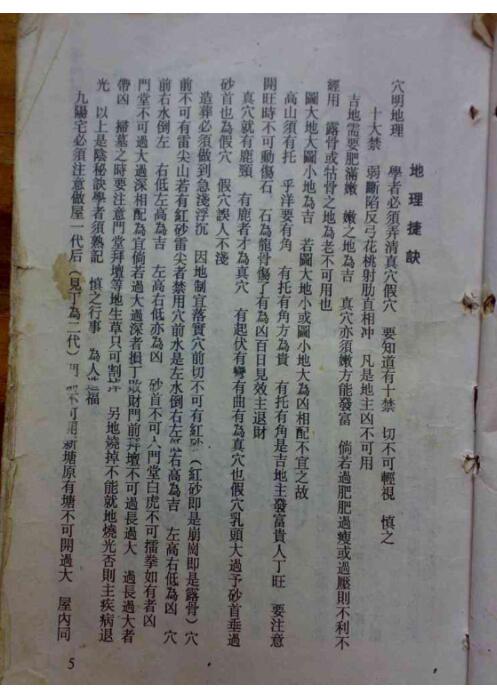 地理捷訣
穴明地理　學者必須弄清真穴假穴　要知道有十禁　切不可輕視　慎之
十大禁　弱斷陷反弓花桃射肋直相冲　凡是地主凶不可用
吉地需要肥滿嫩　嫩之地為吉　真穴亦須嫩方能發富　倘若過肥肥過瘦或過壓則不利不
經用　露骨或牯骨之地為老不可用也
圖大地大圖小地為吉　若圖大地小或圖小地大為凶相配不宜之故
高山須有托　乎洋要有角　有托有角方為貴　有托有角是吉地主發富貴人丁旺　要注意
開旺時不可動傷石　石為龍骨傷了有為凶百日見效主退財
真穴就有鹿頸　有鹿者才為真穴　有起伏有彎有曲有為真穴也假穴乳頭大過予砂首垂過
砂首也為假穴　假穴誤人不淺
造葬必須做到急淺浮沉　因地制宜落實穴前切不可有紅砂（紅砂即是崩崗即是露骨）穴
前不可有雷尖山若有紅砂雷尖者禁用穴前水是左水倒右左高右高為吉　左高右低為凶　穴
前右水倒左　右低左高為吉　左高右低亦為凶　砂首不可入門堂白虎不可擂拳如有者凶
門堂不可過大過深相配為宜倘若過大過深者損丁敗財門前拜壇不可過長過大　過長過大者
帶凶　掃墓之時要注意門堂拜壇等地生草只可割掉　另地燒掉不能就地燒光否則主疾病退
光　以上是陰秘訣學者須熟記　慎之行事　為人造福
九陽宅必須注意做屋一代后（見丁為二代）門　不可用新塘原有塘不可開過大　屋內同
5